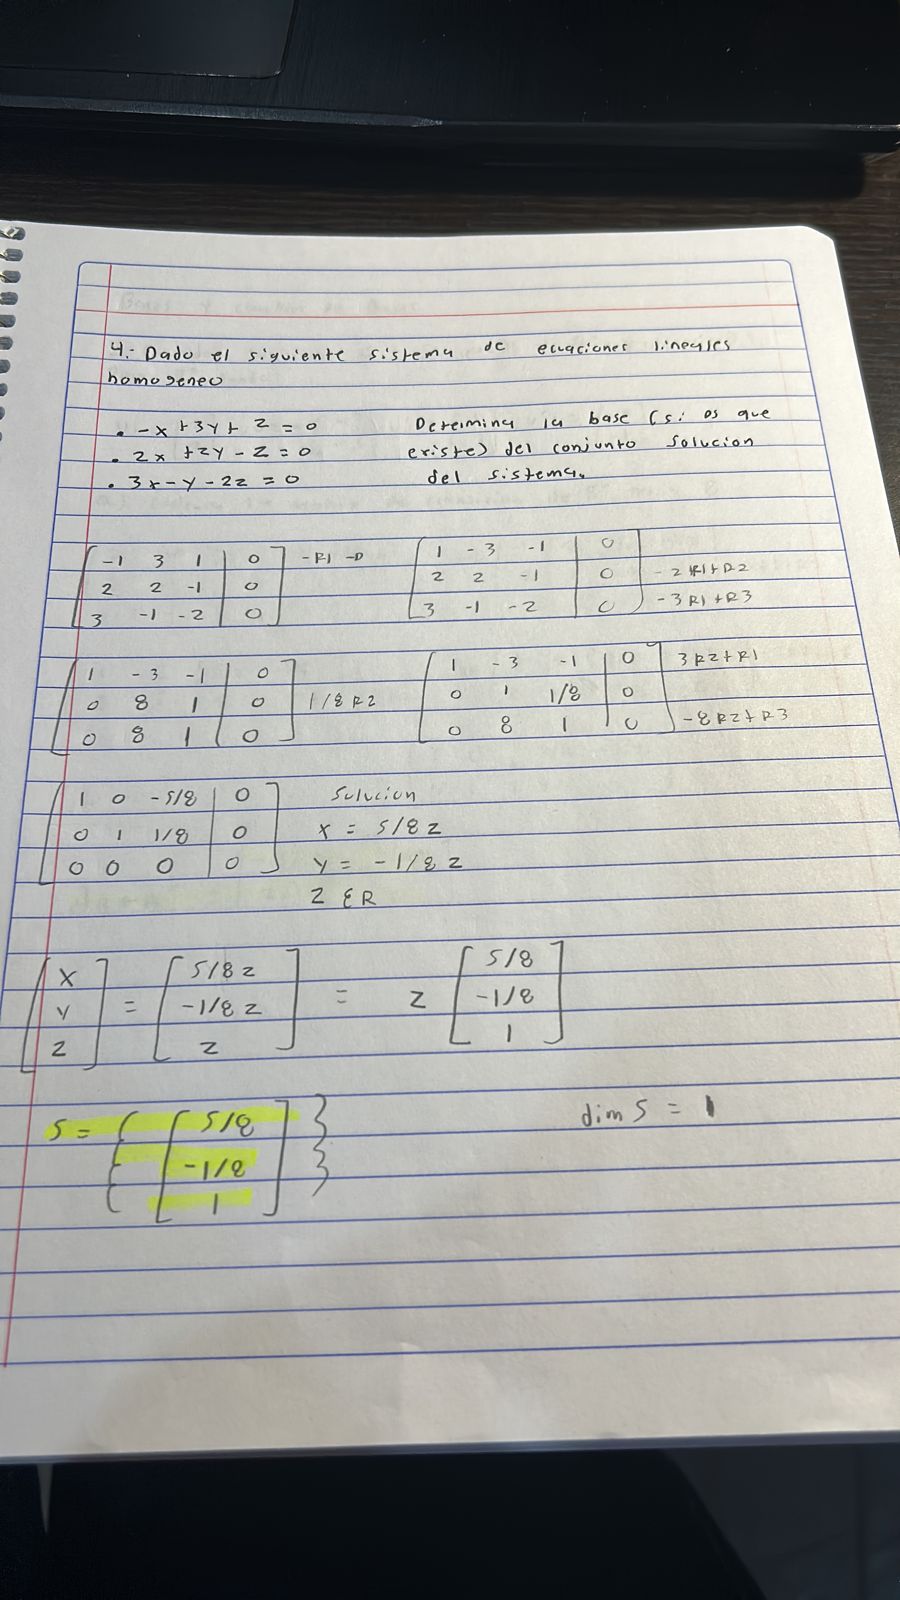 4.- Dado el siguiente sistema de ecuaciones lineales
homogeneo
. -x + 3y + z = 0
. 2x + 2y - z = 0
. 3x - y - 2z = 0
Determina la base (si es que
existe) del conjunto solucion
del sistema.
[-1 3 1 | 0] -R1 →
[2 2 -1 | 0]
[3 -1 -2 | 0]
[1 -3 -1 | 0]
[2 2 -1 | 0] -2R1+R2
[3 -1 -2 | 0] -3R1+R3
[1 -3 -1 | 0]
[0 8 1 | 0] 1/8 R2
[0 8 1 | 0]
[1 -3 -1 | 0] 3R2+R1
[0 1 1/8 | 0]
[0 8 1 | 0] -8R2+R3
[1 0 -5/8 | 0]
[0 1 1/8 | 0]
[0 0 0 | 0]
Solucion
x = 5/8 z
y = -1/8 z
z ∈ R
[x] = [5/8 z] = z [5/8]
[y] [-1/8 z] [-1/8]
[z] [z] [1]
S = { [5/8] }
[-1/8]
[1]
dim S = 1